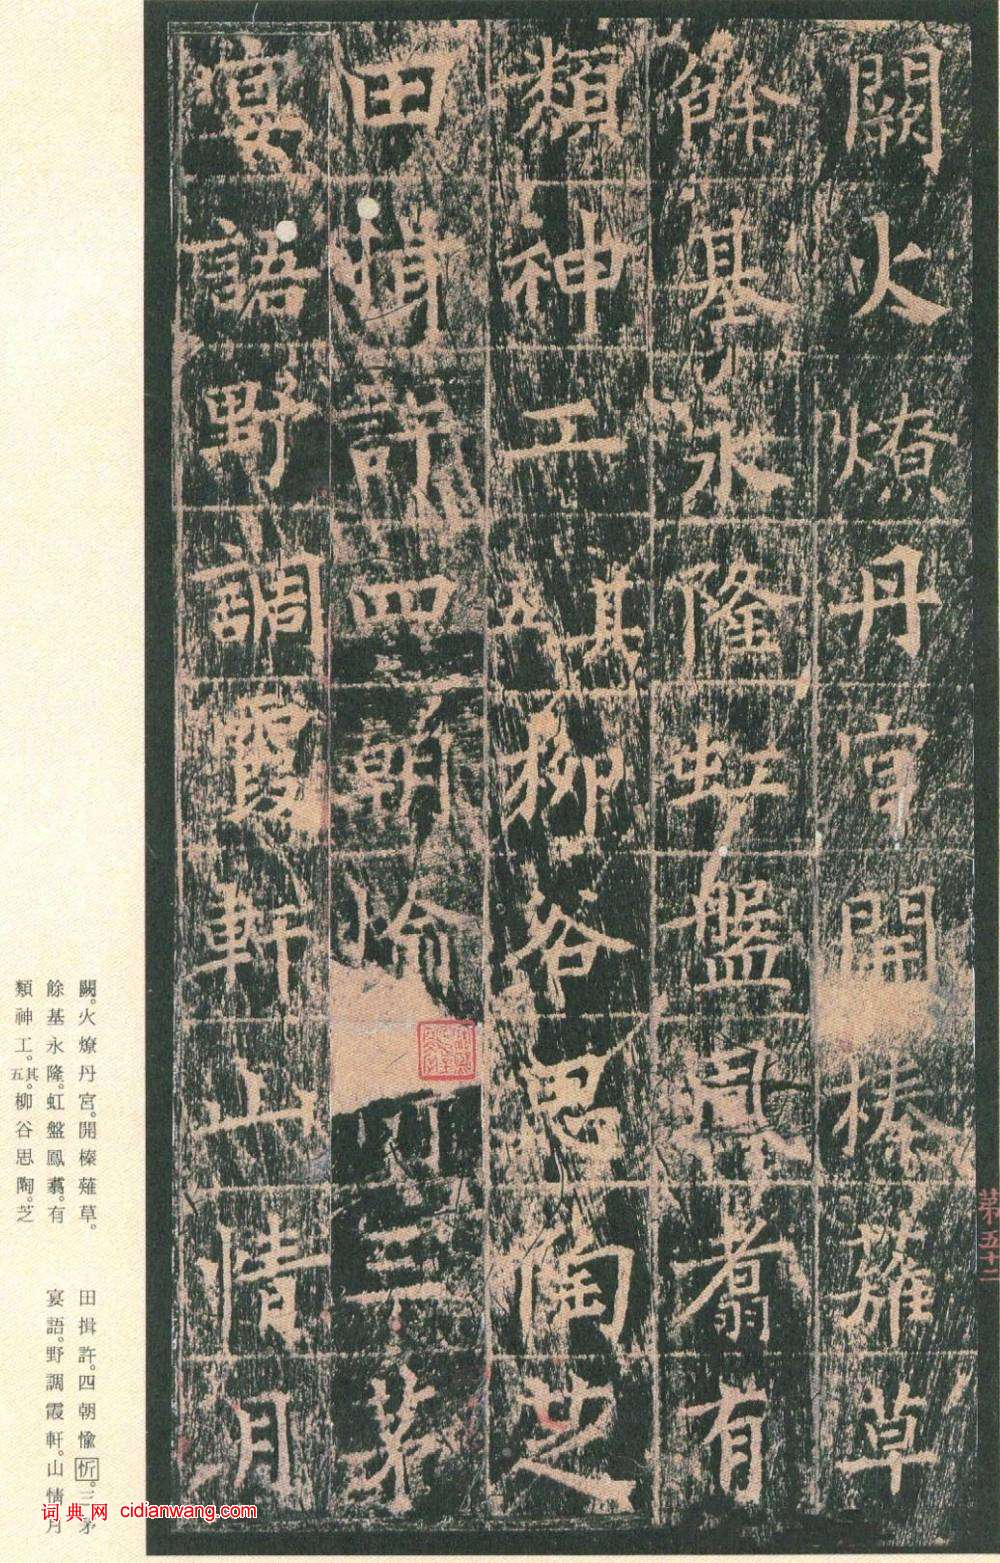 闕火燎丹宮開榛薙草
餘基永隆虹盤鳳翥有
類神工其五柳谷思陶芝
田揖許四朝愉三茅
宴語野調霞軒山情月
第五十二
闕。火燎丹宮。開榛薙草。
餘基永隆。虹盤鳳翥。有
類神工。其五。柳谷思陶。芝
田揖許。四朝愉忻。三茅
宴語。野調霞軒。山情月
词典网 cidianwang.com